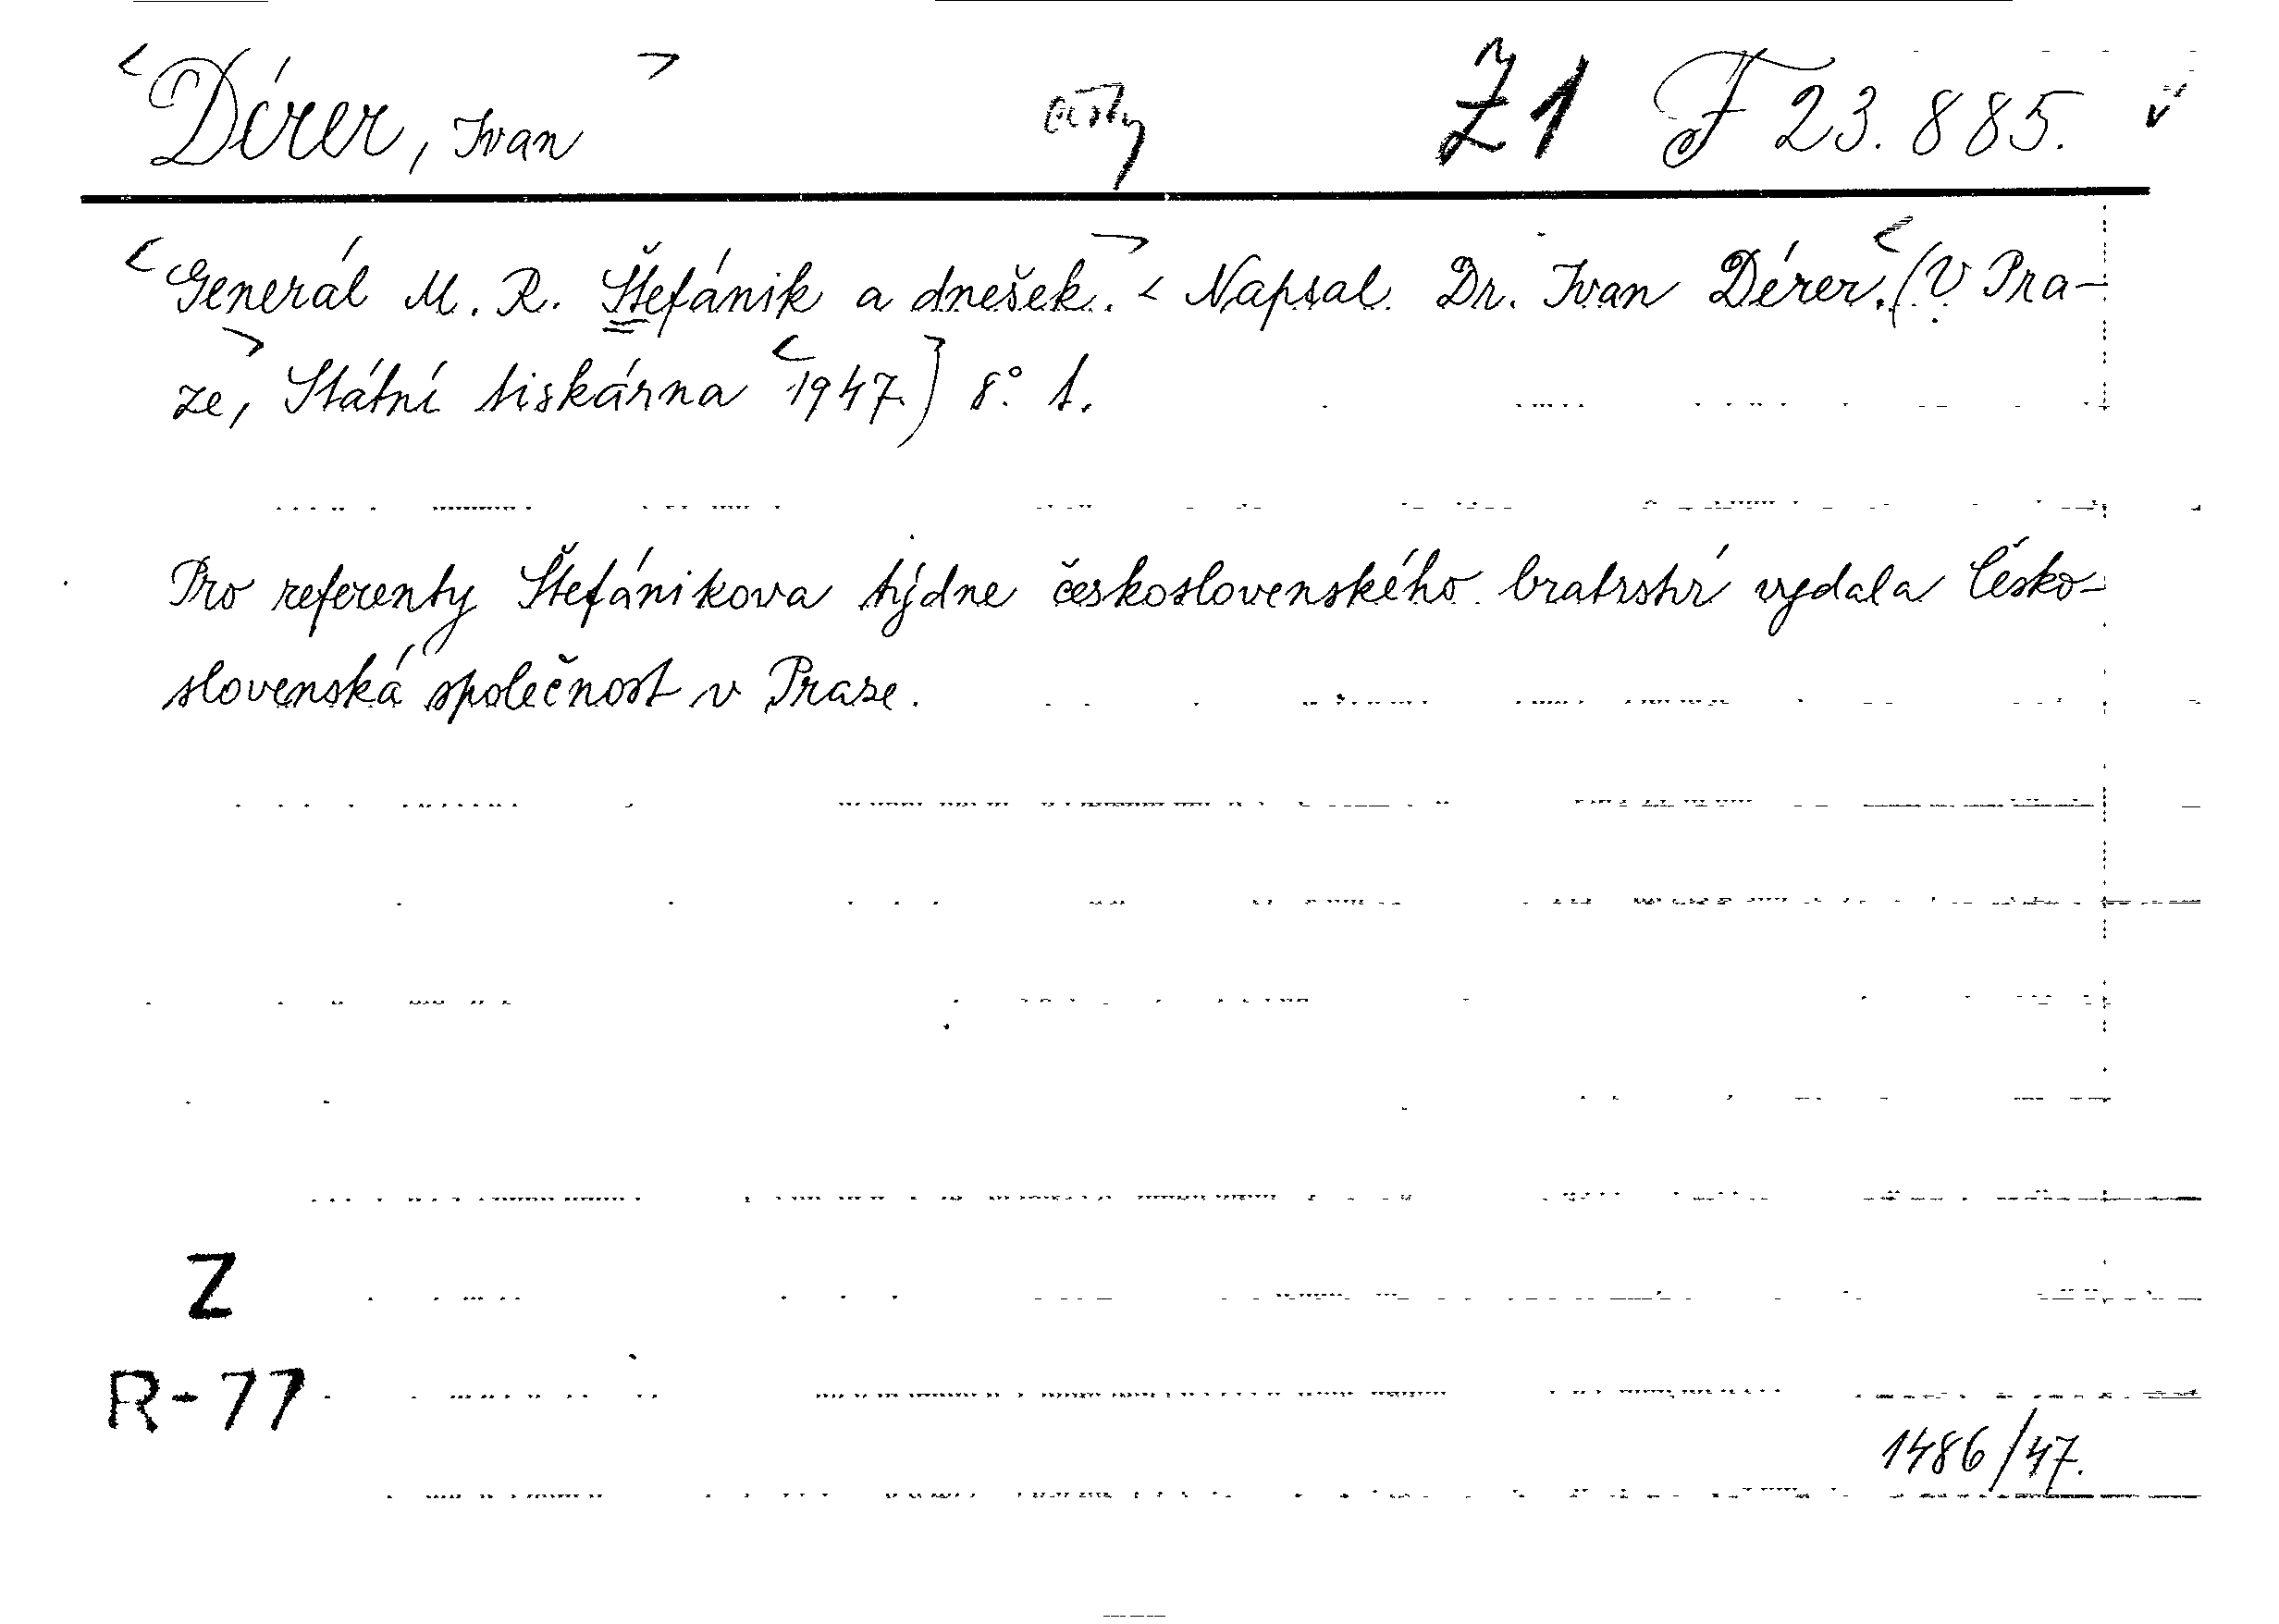 <Dérer, Ivan> Ž1 F 23.885. v
<Generál M. R. Štefánik a dnešek.> < Napsal Dr. Ivan Dérer.<(V Pra-
ze,> Státní tiskárna <1947.) 8° 1.
Pro referenty Štefánikova týdne československého bratrství vydala Česko-
slovenská společnost v Praze.
Z
R-77
1486/47.